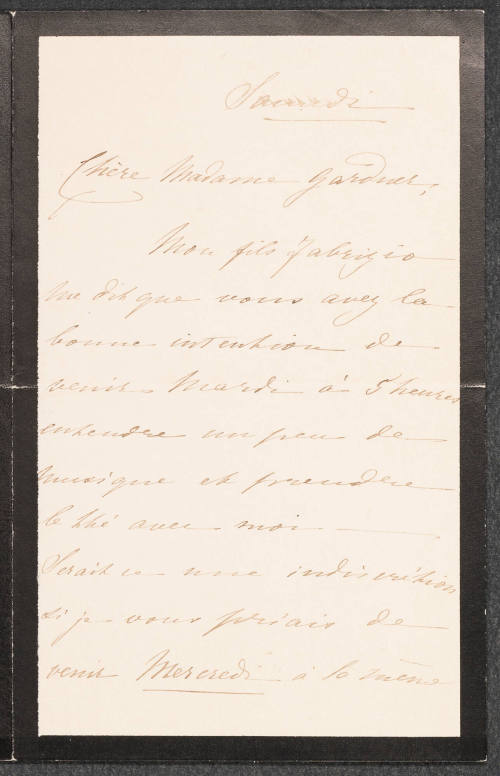 Samedi
Chère Madame Gardner,
Mon fils Fabrizio
me dit que vous avez la
bonne intention de
venir Mardi à 5 heures
entendre un peu de
musique et prendre
le thé avec moi
Serait ce une indiscrétion
si je vous priais de
venir Mercredi à la même